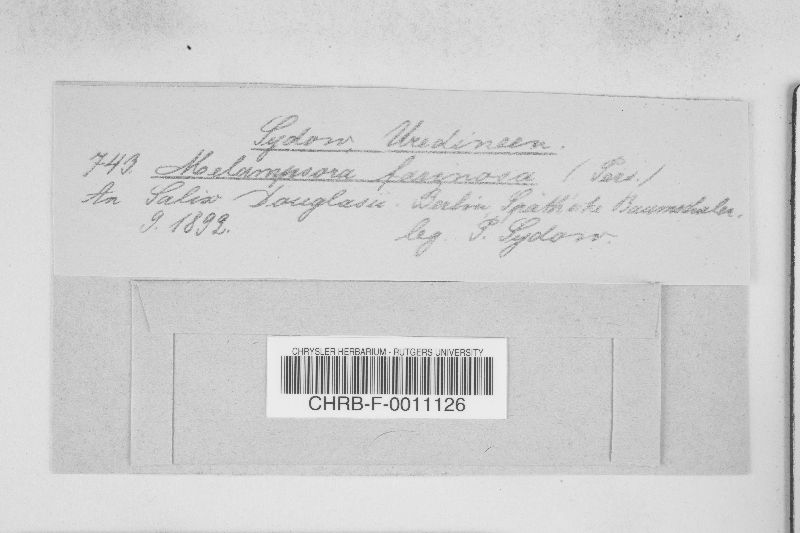 Sydow, Uredineen.
743. Melampsora farinosa (Pers.)
An Salix Douglasii. Berlin, Späth'che Baumschulen.
9. 1892. leg. P. Sydow.
CHRYSLER HERBARIUM - RUTGERS UNIVERSITY
CHRB-F-0011126